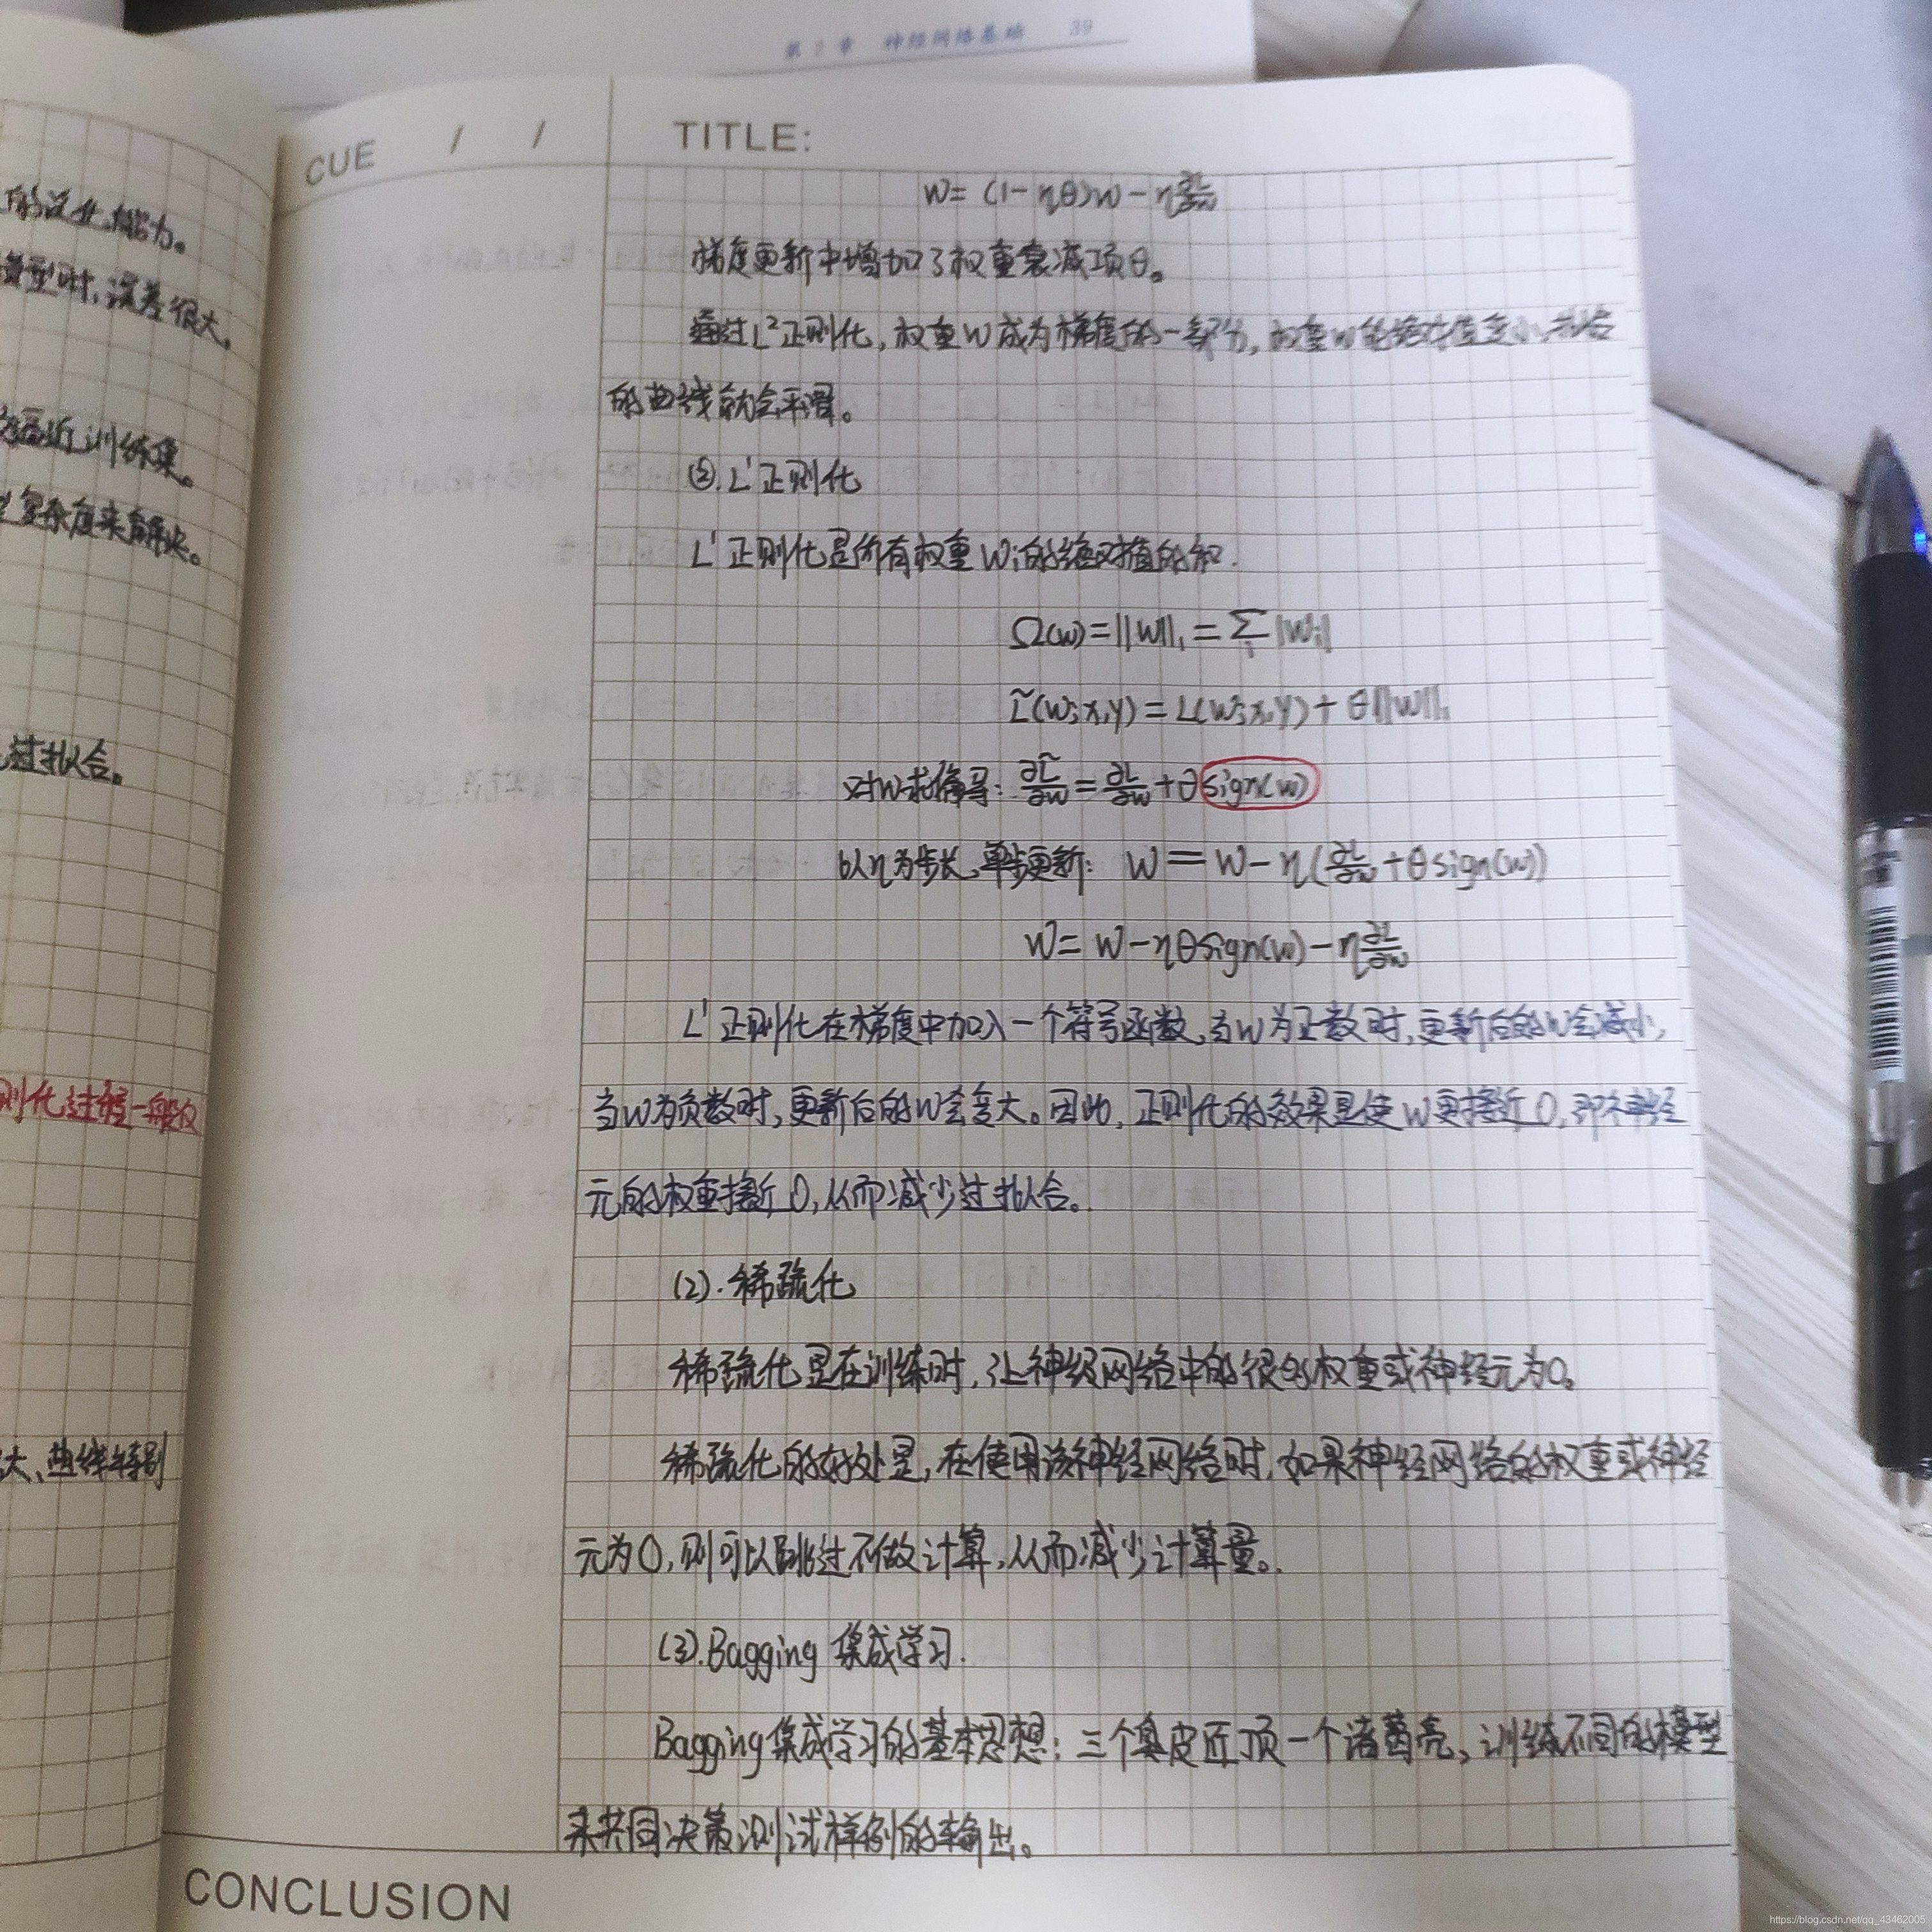 第2章 神经网络基础 39
的泛化能力。
型时,误差很大。
逼近训练集。
复杂度来解决。
过拟合。
则化过程一般仅
大、曲线特别
CUE / /
TITLE:
W = (1-ηθ)w - η ∂L/∂w
梯度更新中增加了权重衰减项θ。
通过L²正则化,权重W成为梯度的一部分,权重w的绝对值变小,拟合
的曲线就会平滑。
②.L¹正则化
L¹正则化是所有权重Wi的绝对值的和.
Ω(w)=||W||₁=∑i|Wi|
L̃(W;x,y)=L(W;x,y)+θ||W||₁
对W求偏导: ∂L̃/∂w=∂L/∂w+θsign(w)
以η为步长,单步更新: W=W-η(∂L/∂w+θsign(w))
W=W-ηθsign(w)-η ∂L/∂w
L¹正则化在梯度中加入一个符号函数,当W为正数时,更新后的W会减小,
当W为负数时,更新后的W会变大。因此,正则化的效果是使W更接近0,即神经
元的权重接近0,从而减少过拟合。
(2).稀疏化
稀疏化是在训练时,让神经网络中的很多权重或神经元为0。
稀疏化的好处是,在使用该神经网络时,如果神经网络的权重或神经
元为0,则可以跳过不做计算,从而减少计算量。
(3).Bagging 集成学习.
Bagging集成学习的基本思想:三个臭皮匠顶一个诸葛亮,训练不同的模型
来共同决策测试样例的输出。
CONCLUSION
https://blog.csdn.net/qq_43462005